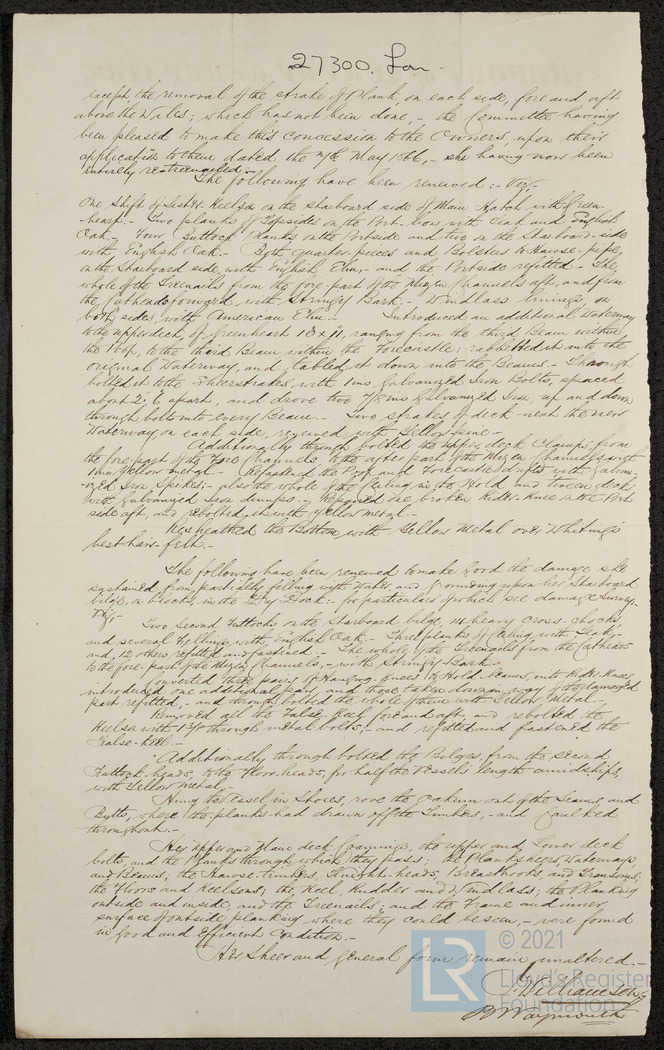 27300. Lon.
except the removal of the strake of Plank, on each side, fore and aft
above the Wales; which has not been done, - the Committee having
been pleased to make this concession to the Owners, upon their
application to them dated the 7th May 1866, - she having now been
entirely re-treenailed. -
The following have been renewed: - Viz.
One Shift of Sister Keelson on the starboard side of Main Hatch, with Green-
heart. - Two planks of Topsides on the Port-bow with Teak and English
Oak. - Four Buttock planks on the Portside and two on the Starboard-side
with English Oak. - Both quarter-pieces and Bolsters to Hawse-pipe,
on the Starboard side, with English Elm, - and the Portside refitted. - The
whole of the Treenails from the fore-part of the Mizen Channels aft, and from
the Catheads forward with Stringy Bark. - Windlass linings, on
both sides, with American Elm. - Introduced an additional Waterway
to the upper deck, of Greenheart 13 x 11, ranging from the third Beam within
the Poop, to the third Beam within the Forecastle; rabbetted it into the
original Waterway, and tabled it down into the Beams. - Through
bolted it to the Sheerstrakes with 1 ins. Galvanized Iron Bolts, spaced
about 2.6 apart, and drove two 7/8 ins Galvanized Iron, up and down
through bolts into every Beam. - Two strakes of deck next the new
Waterway, on each side, renewed with Yellow-pine. -
Additionally through bolted the upper deck Clamps from
the fore-part of the Fore Channels to the after part of the Mizen Channels with
1 ins Yellow metal. - Refastened the Poop and Forecastle drifts with Galvan-
-ized Iron Spikes; also the whole of the Ceiling in the Hold and tween decks
with Galvanized Iron dumps. - Repaired one broken Rider-Knee on the Port
side aft, and rebolted it with Yellow metal. -
Resheathed the Bottom with Yellow Metal over Whiting's
best hair-felt. -
The following have been renewed to make good the damage she
sustained from partially filling with Water, and grounding upon her Starboard
bilge, on blocks, in the Dry Dock: - for particulars of which see damage Survey.
Viz. -
Two Second Futtocks on the Starboard bilge, 14 heavy cross-chocks,
and several fillings with English Oak. - Three planks of Ceiling with Teak,
and 12 others refitted and fastened. - The whole of the Treenails from the Catheads
to the fore-part of the Mizen Channels, - with Stringy-Bark. -
Converted three pairs of Hanging-knees to Hold-Beams, into Rider-Knees,
introduced one additional pair, and those taken down in way of the damaged
part refitted, - and through bolted the whole of them with Yellow Metal. -
Removed all the False-Keel fore and aft, and rebolted the
Keelson with 1 3/8 through metal bolts, - and refitted and fastened the
False-keel. -
Additionally through bolted the Bilges, from the Second
Futtock-heads, to the Floor-heads, for half the Vessel's length amidships,
with Yellow Metal. -
Hung the Vessel in Shores, rove the oakum out of the Seams and
Butts, where the planks had drawn off the Timbers, - and caulked
throughout. -
Her upper and Main deck Coamings, the upper and Lower deck
bolts, and the Clamps through which they pass; the Planksheers, Waterways,
and Beams; the Hawse-timbers, Knight-heads, Breasthooks, and Transoms;
the Floors and Keelsons; the Keel, Rudder and Windlass; the Planking
outside and inside, and the Treenails; and the Frame and inner
surface of outside planking, where they could be seen, - were found
in Good and Efficient Condition. -
Her Sheer and general form remain unaltered. -
J. Williamson
B Waymouth
LR © 2021
Lloyd's Register
Foundation